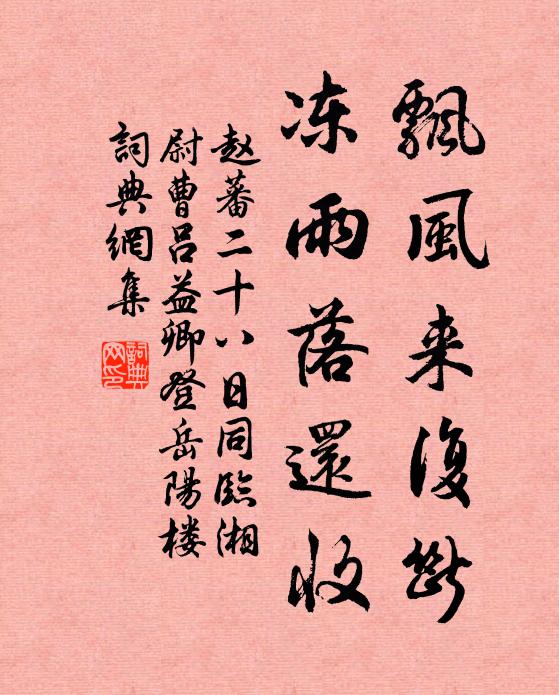 飄風来復斷
凍雨落還收
赵蕃二十八日同臨湘
尉曹吕益卿登岳陽楼
詞典網集
詞典
网印